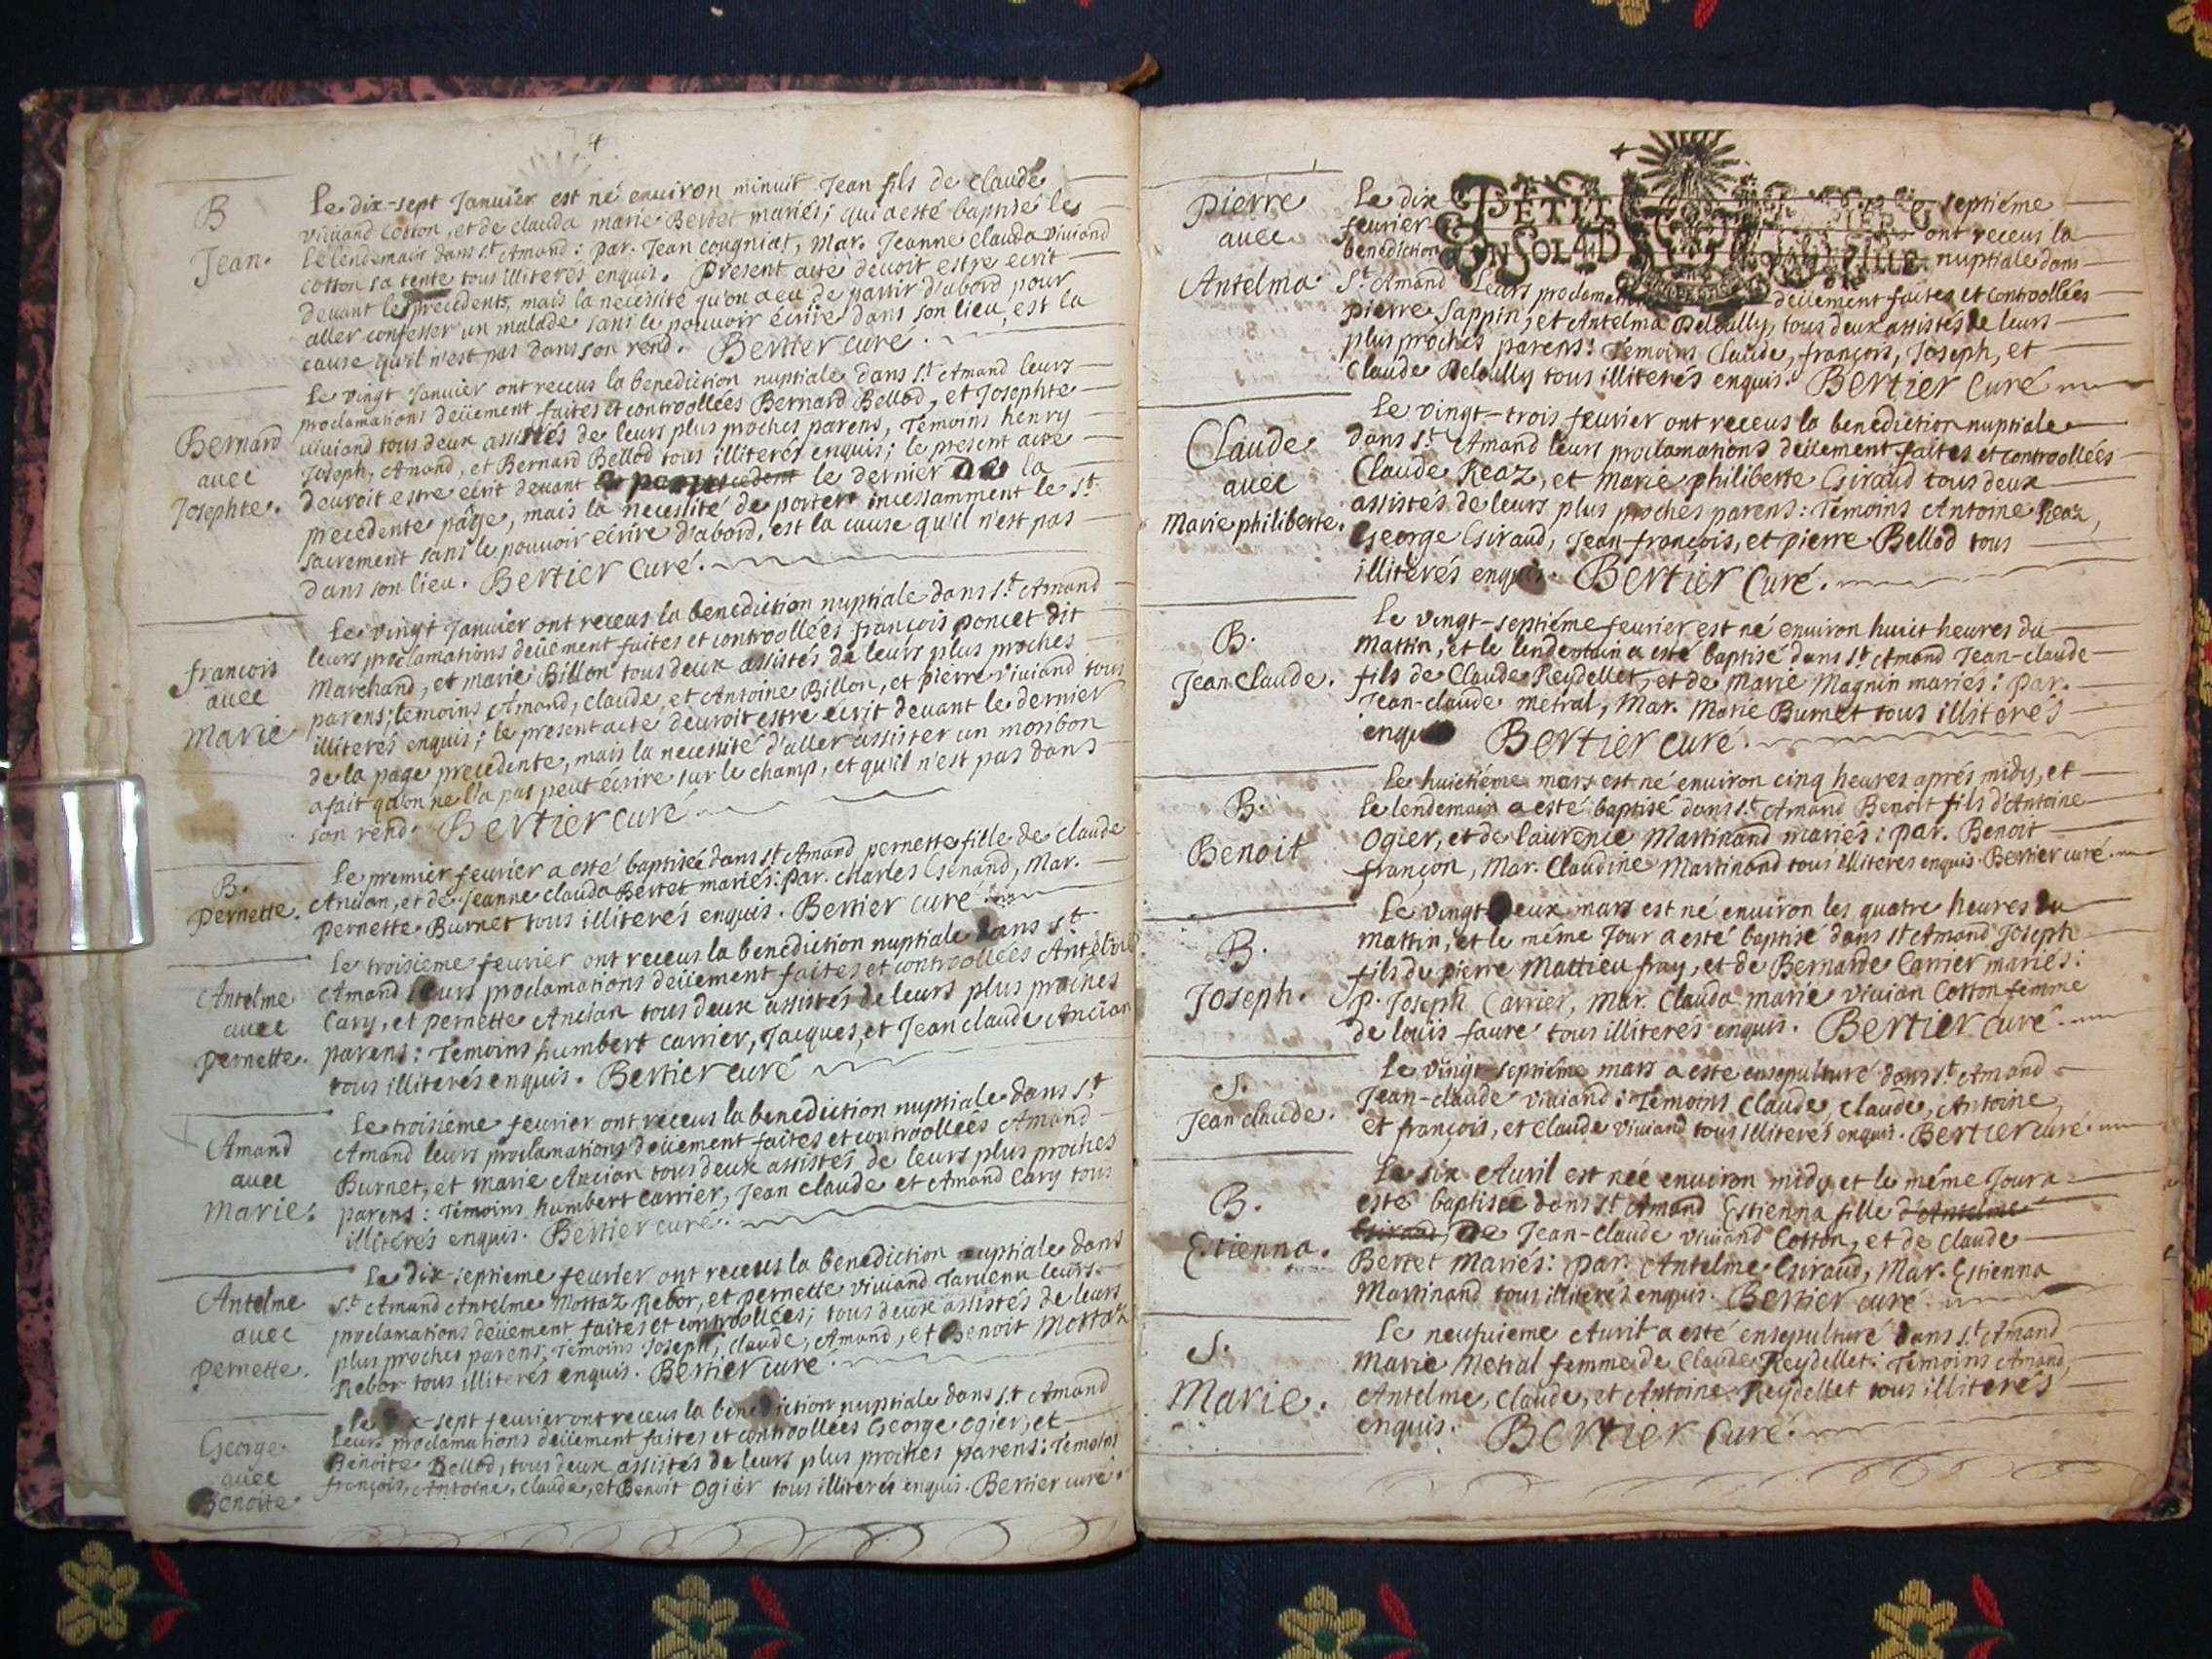 B
Jean.
Le dix-sept Januier est né enuiron minuit Jean fils de Claude
viuiand Cotton, et de clauda marie Bertet mariés; qui a esté baptisé le
lelendemain dans st. Amand: par. Jean cougniat, Mar. Jeanne Clauda viuiand
cotton sa tente tous illiterés enquis. Present acte deuoit estre ecrit
deuant les precedents, mais la necessité qu'on a eu de partir d'abord pour
aller confesser un malade sans le pouuoir écrire dans son lieu, est la
cause qu'il n'est pas dans son rend. Bertier curé.
Bernard
auec
Josephte.
Le vingt Januier ont receus la benediction nuptiale dans st. Amand leurs
proclamations deüement faites et controollées Bernard Bellod, et Josephte
viuiand tous deux assistés de leurs plus proches parens, Témoins henry
Joseph, Amand, et Bernard Bellod tous illiterés enquis; le present acte
deuroit estre écrit deuant le dernier de la
precedente page, mais la necessité de porter incessamment le st.
sacrement sans le pouuoir écrire d'abord, est la cause qu'il n'est pas
dans son lieu. Bertier Curé.
françois
auec
Marie
Le vingt Januier ont receus la benediction nuptiale dans st. Amand
leurs proclamations deüement faites et controollées françois poncet dit
Marchand, et marie Billon tous deux assistés de leurs plus proches
parens; témoins Amand, claude, et Antoine Billon, et pierre viuiand tous
illiterés enquis; le present acte deuroit estre écrit deuant le dernier
de la page precedente, mais la necessité d'aller assister un moribon
a fait qu'on ne l'a pas peut écrire sur le champ, et qu'il n'est pas dans
son rend. Bertier curé
B.
Pernette.
Le premier feurier a esté baptisée dans st. Amand pernette fille de claude
Ancian, et de Jeanne clauda Bertet mariés: par. charles Genand, Mar.
pernette Burnet tous illiterés enquis. Bertier curé
Antelme
auec
Pernette.
Le troisieme feurier ont receus la benediction nuptiale dans st.
Amand leurs proclamations deüement faites et controollées Antelme
Cary, et pernette Ancian tous deux assistés de leurs plus proches
parens: Témoins humbert carrier, Jacques, et Jean claude Ancian
tous illiterés enquis. Bertier curé
Amand
auec
Marie.
Le troisiéme feurier ont receus la benediction nuptiale dans st.
Amand leurs proclamations deüement faites et controollées Amand
Burnet, et marie Ancian tous deux assistés de leurs plus proches
parens: Témoins humbert Carrier, Jean claude et Amand Cary tous
illiterés enquis. Bertier curé.
Antelme
auec
Pernette.
Le dix-septieme feurier ont receus la benediction nuptiale dans
st. Amand Antelme Mottaz Rebor, et pernette viuiand leurs
proclamations deüement faites et controollées; tous deux assistés de leurs
plus proches parens, Témoins Joseph, Claude, Amand, et Benoit Mottaz
Rebor tous illiterés enquis. Bertier curé.
George
auec
Benoite
Le dix-sept feurier ont receus la benediction nuptiale dans st. Amand
leurs proclamations deüement faites et controollées George ogier, et
Benoite Bellod, tous deux assistés de leurs plus proches parens: Temoins
françois, Antoine, Claude, et Benoit Ogier tous illiterés enquis. Bertier curé.
Pierre
auec
Antelma.
Le dix septiéme
feurier ont receus la
benediction nuptiale dans
PETIT
st. Amand Leurs deüement faites et controollées
pierre Sappin, et Antelma Delbully, tous deux assistés de leurs
plus proches parens: Témoins Claude, françois, Joseph, et
Claude Delbully tous illiterés enquis. Bertier Curé
Claude
auec
Marie philiberte.
Le vingt-trois feurier ont receus la benediction nuptiale
dans st. Amand leurs proclamations deüement faites et controollées
Claude Reaz, et Marie philiberte Giraud tous deux
assistés de leurs plus proches parens: Témoins Antoine Reaz,
George Giraud, Jean-françois, et pierre Bellod tous
illiterés enquis. Bertier Curé.
B.
Jean Claude.
Le vingt-septiéme feurier est né enuiron huict heures du
Mattin, et le lendemain a esté baptisé dans st. Amand Jean-claude
fils de Claude Reydellet, et de Marie Magnin mariés: par.
Jean-claude metral, Mar. Marie Burnet tous illiterés
enquis Bertier curé.
B.
Benoit
Le huictiéme mars est né enuiron cinq heures aprés midy, et
le lendemain a esté baptisé dans st. Amand Benoit fils d'Antoine
Ogier, et de laurence Martinand mariés: par. Benoit
françon, Mar. Claudine Martinand tous illiteres enquis. Bertier curé.
B.
Joseph.
Le vingt deux mars est né enuiron les quatre heures du
mattin, et le méme Jour a esté baptisé dans st Amand Joseph
fils de pierre Mattieu fray, et de Bernarde Carrier mariés:
p. Joseph Carrier, Mar. Clauda marie viuian Cotton femme
de louis faure tous illiterés enquis. Bertier curé.
S.
Jean claude.
Le vingt-septiéme mars a este ensepulturé dans st. Amand
Jean-claude viuiand: Témoins Claude, Claude, Antoine,
et françois, et Claude viuiand tous illiterés enquis. Bertier curé.
B.
Etienna.
Le six Auril est née enuiron midy et le méme Jour a
esté baptisée dans st. Amand Estienna fille d'Antelme
Giraud, de Jean-Claude viuiand Cotton, et de Claude
Bertet Mariés: par. Antelme Giraud, Mar. Estienna
Martinand tous illiterés enquis. Bertier curé.
S.
Marie.
Le neufuieme Auril a esté ensepulturé dans st. Amand
Marie Metral femme de Claude Reydellet: Témoins Amand,
Antelme, Claude, et Antoine Reydellet tous illiterés
enquis. Bertier Curé.